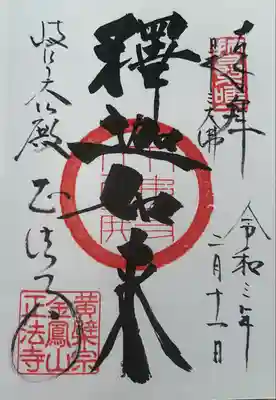 奉拝
日本三大佛
令和三年
二月十一日
釋迦如来
岐阜大仏殿
正法寺
黄檗宗
金鳳山
正法寺